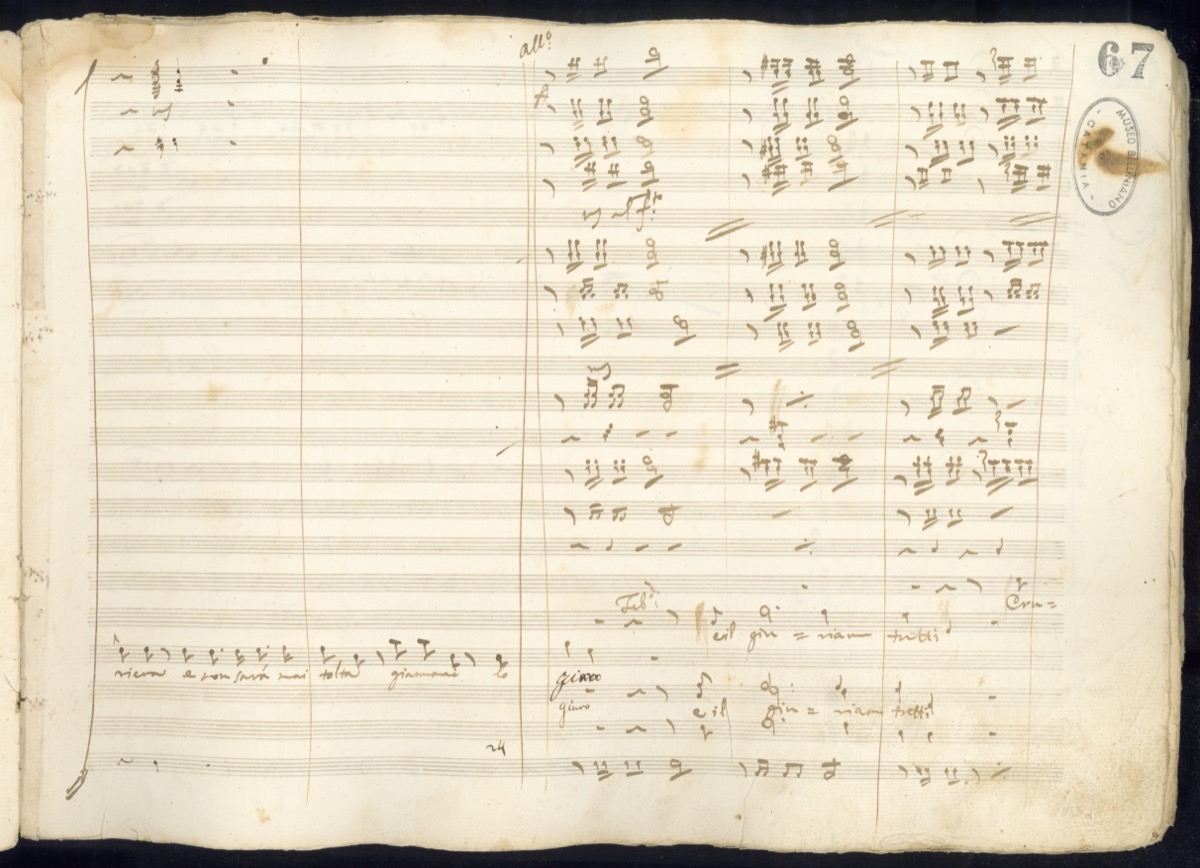 67
MUSEO BELLINIANO - CATANIA -
all.º
Cru=
e il giu = riamo tutti
riera e non sarà mai tolta giammai lo
giuro
giuro e il giu = riam tutti
24